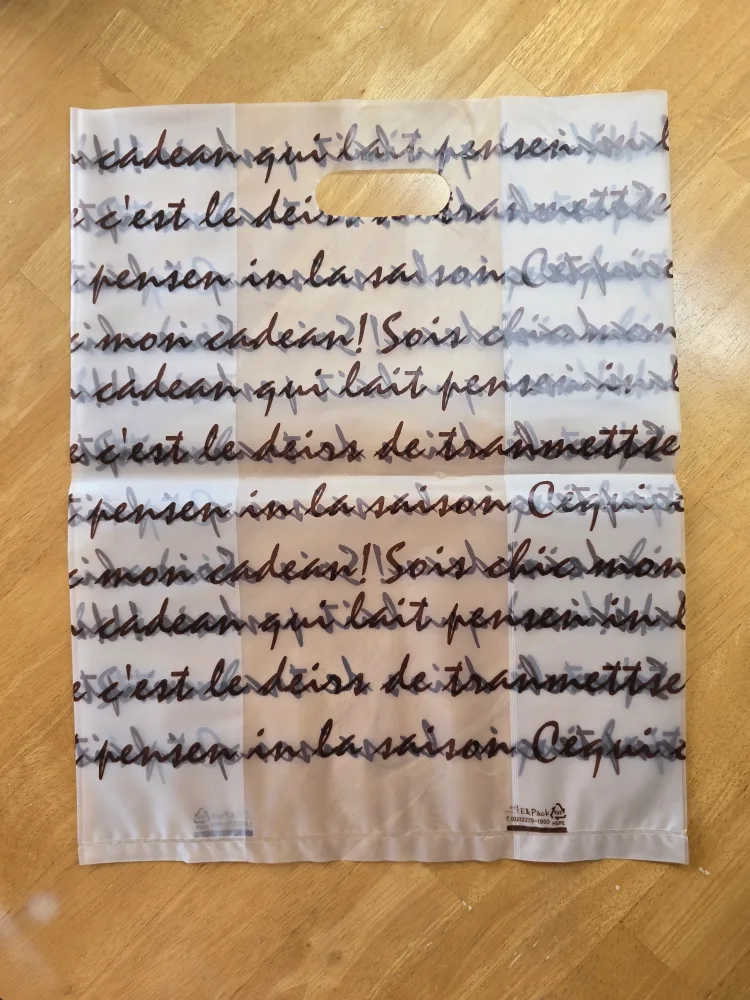 cadean qui lait pensen in l
e c'est le deirs tranmettse
pensen in la saison Cequi
mon cadean! Sois chic mon
cadean qui lait pensen in l
e c'est le deirs de tranmettse
pensen in la saison Cequi
mon cadean! Sois chic mon
cadean qui lait pensen in l
e c'est le deirs de tranmettse
pensen in la saison Cequi
E&Pack
HDPE